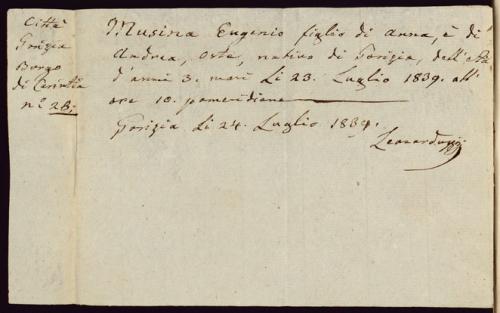 Città
Gorizia
Borgo
di Carintia
nº 28.
Musina Eugenio figlio di Anna, è di
Andrea, Oste, nativo di Gorizia, dell'età
d'anni 3. morì Li 23. Luglio 1839. all'
ore 10. pomeridiane
Gorizia Li 24. Luglio 1839.
Leonarduzzi